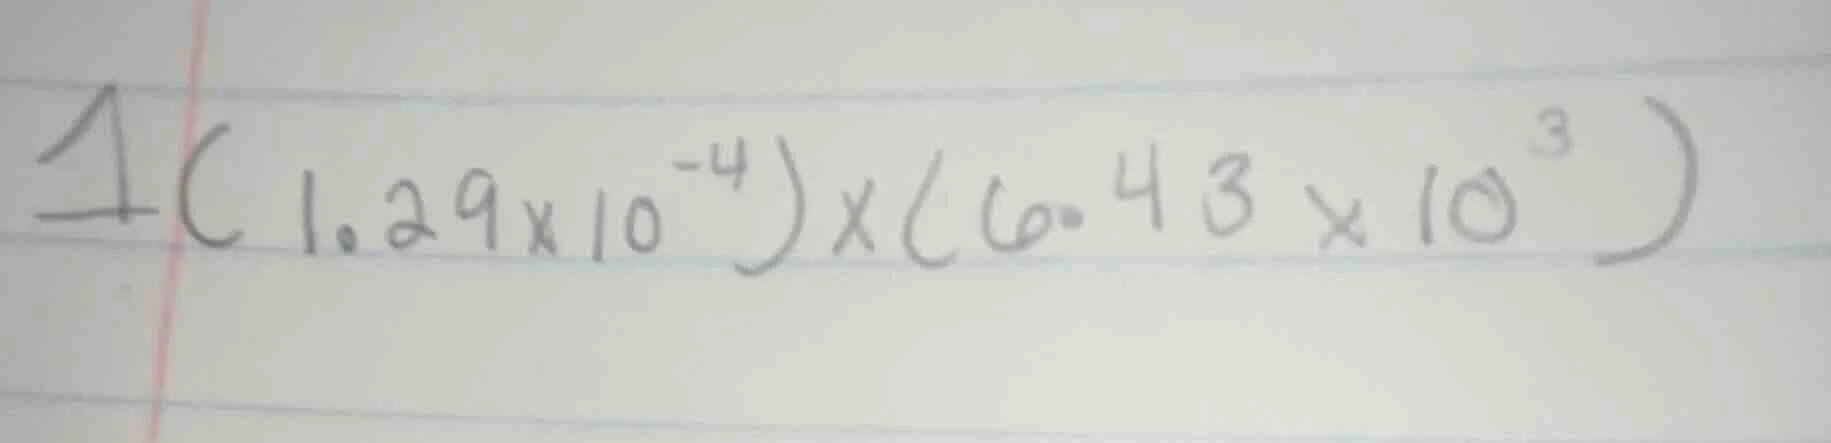 1 (1.29x10⁻⁴)x(6.43 x 10³)